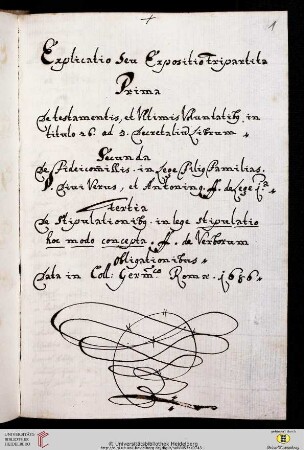 1
Explicatio Seu Expositio Tripartita
Prima
De testamentis, et Vltimis Voluntatib9 in
titulo 26. ad 3. Decretaliū Librum
Secunda
De Fideicom̄issis. in Lege Filig Familias.
§. Divi Verus, et Antoning. ff. de Lege
Tertia
De Stipulationib9. in lege stipulatio
hoc modo concepta. ff. de Verborum
Obligationibus
Data in Coll: Germco Romæ. 1686.
UNIVERSITÄTS-
BIBLIOTHEK
HEIDELBERG
© Universitätsbibliothek Heidelberg